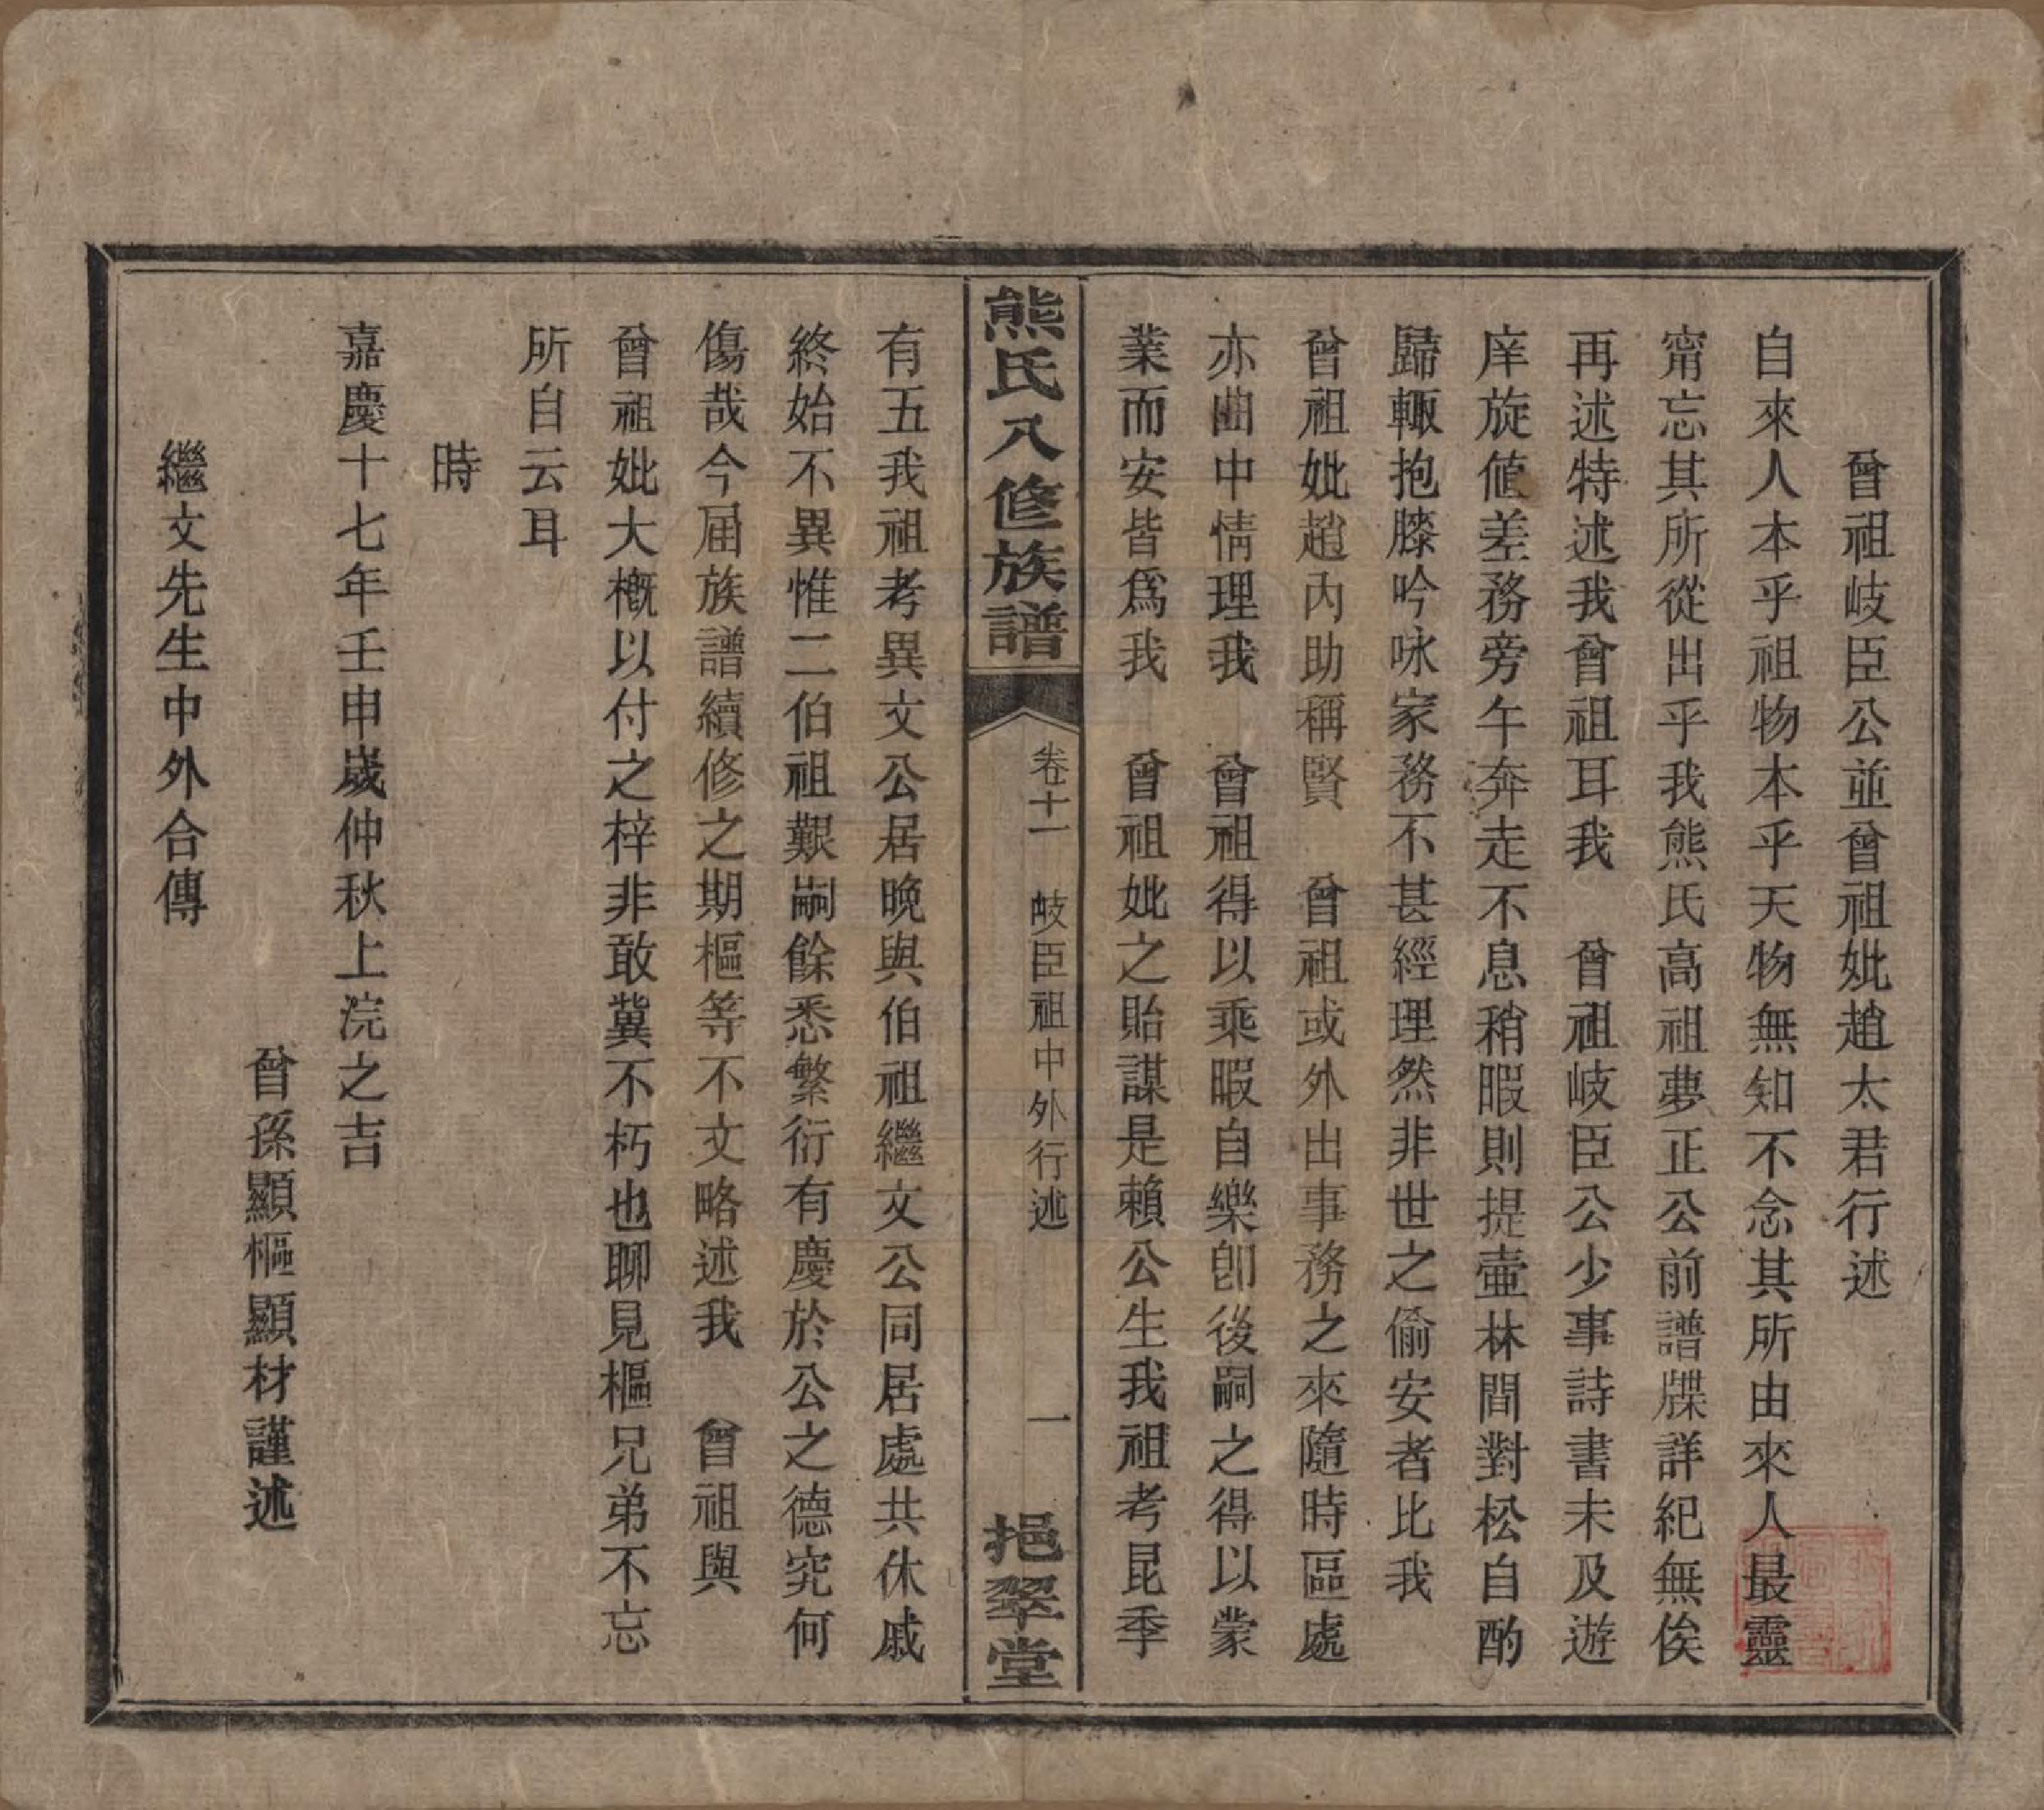 曾祖岐臣公並曾祖妣趙太君行述
自來人本乎祖物本乎天物無知不念其所由來人最靈
甯忘其所從出乎我熊氏高祖夢正公前譜牒詳紀無俟
再述特述我曾祖耳我　曾祖岐臣公少事詩書未及遊
庠旋値差務旁午奔走不息稍暇則提壷林間對松自酌
歸輙抱膝吟咏家務不甚經理然非世之偷安者比我
曾祖妣趙內助稱賢　曾祖或外出事務之來隨時區處
亦曲中情理我　曾祖得以乘暇自樂卽後嗣之得以蒙
業而安皆爲我　曾祖妣之貽謀是賴公生我祖考昆季
熊氏八修族譜　卷十一　岐臣祖中外行述　一　挹翠堂
有五我祖考異文公居晚與伯祖繼文公同居處共休戚
終始不異惟二伯祖艱嗣餘悉繁衍有慶於公之德究何
傷哉今屆族譜續修之期樞等不文略述我　曾祖與
曾祖妣大槪以付之梓非敢冀不朽也聊見樞兄弟不忘
所自云耳
時
嘉慶十七年壬申歲仲秋上浣之吉
曾孫顯樞顯材謹述
繼文先生中外合傳